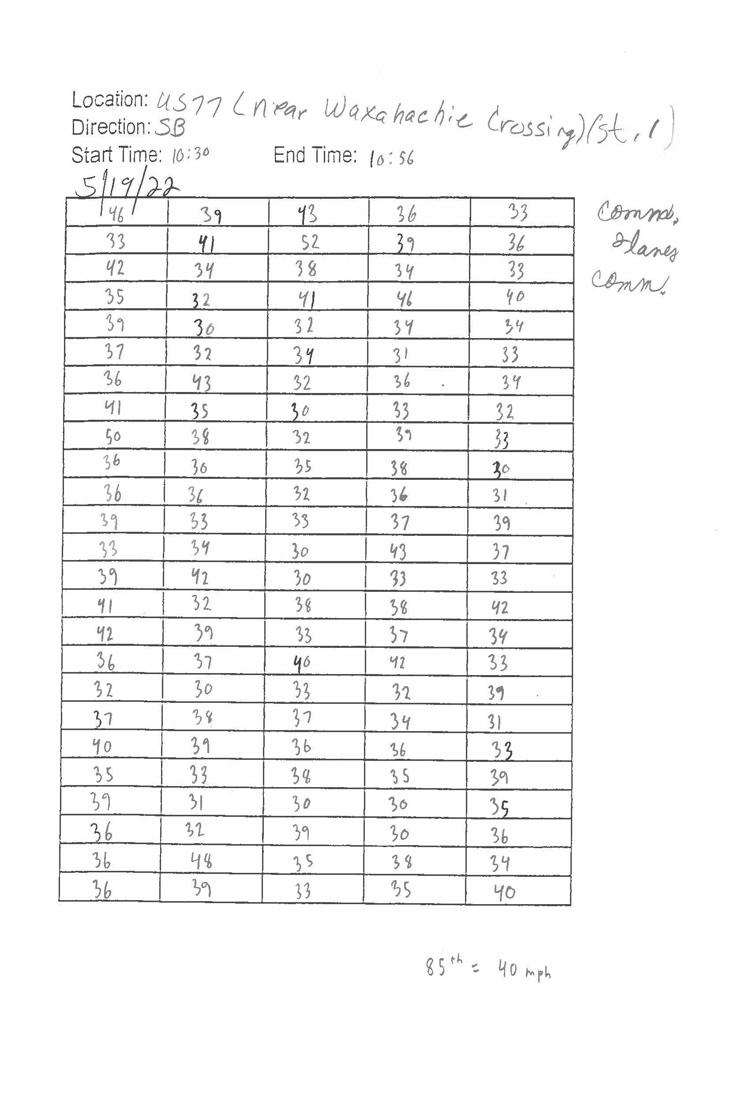 Location: US77 (near Waxahachie Crossing)(St. 1)
Direction: SB
Start Time: 10:30 End Time: 10:56
5/19/22
46 39 43 36 33
33 41 52 39 36
42 34 38 34 33
35 32 41 46 40
39 30 32 34 34
37 32 34 31 33
36 43 32 36 34
41 35 30 33 32
50 38 32 39 33
36 30 35 38 30
36 36 32 36 31
39 33 33 37 39
33 34 30 43 37
39 42 30 33 33
41 32 38 38 42
42 39 33 37 34
36 37 40 42 33
32 30 33 32 39
37 38 37 34 31
40 39 36 36 33
35 33 38 35 39
39 31 30 30 35
36 32 39 30 36
36 48 35 38 34
36 39 33 35 40
2lanes
Comm.
85th = 40 mph